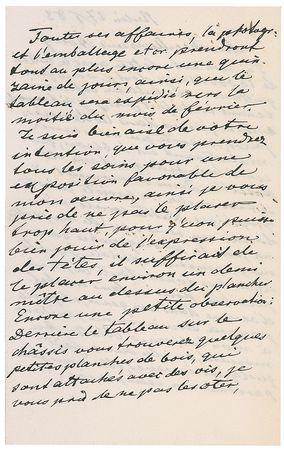 Toutes ces affaires, la photogr.
et l'emballage etor prendront
tout au plus encore une quin-
zaine de jours, ainsi, que le
tableau sera expidié vers la
moitié du mois de février.
Je suis bien aise de votre
intention, que vous prendrez
tous les soins pour une
exposition favorable de
mon oeuvre, ainsi je vous
prie de ne pas le placer
trop haut, pour qu'on puisse
bien jouir de l'expression
des têtes, il suffirait de
le placer environ un demi
mêtre au dessus du planches.
Encore une petite observation:
Derrière le tableau sur le
châssis vous trouverez quelques
petites planches de bois, qui
sont attachés avec des vis, je
vous prie de ne pas les oter,